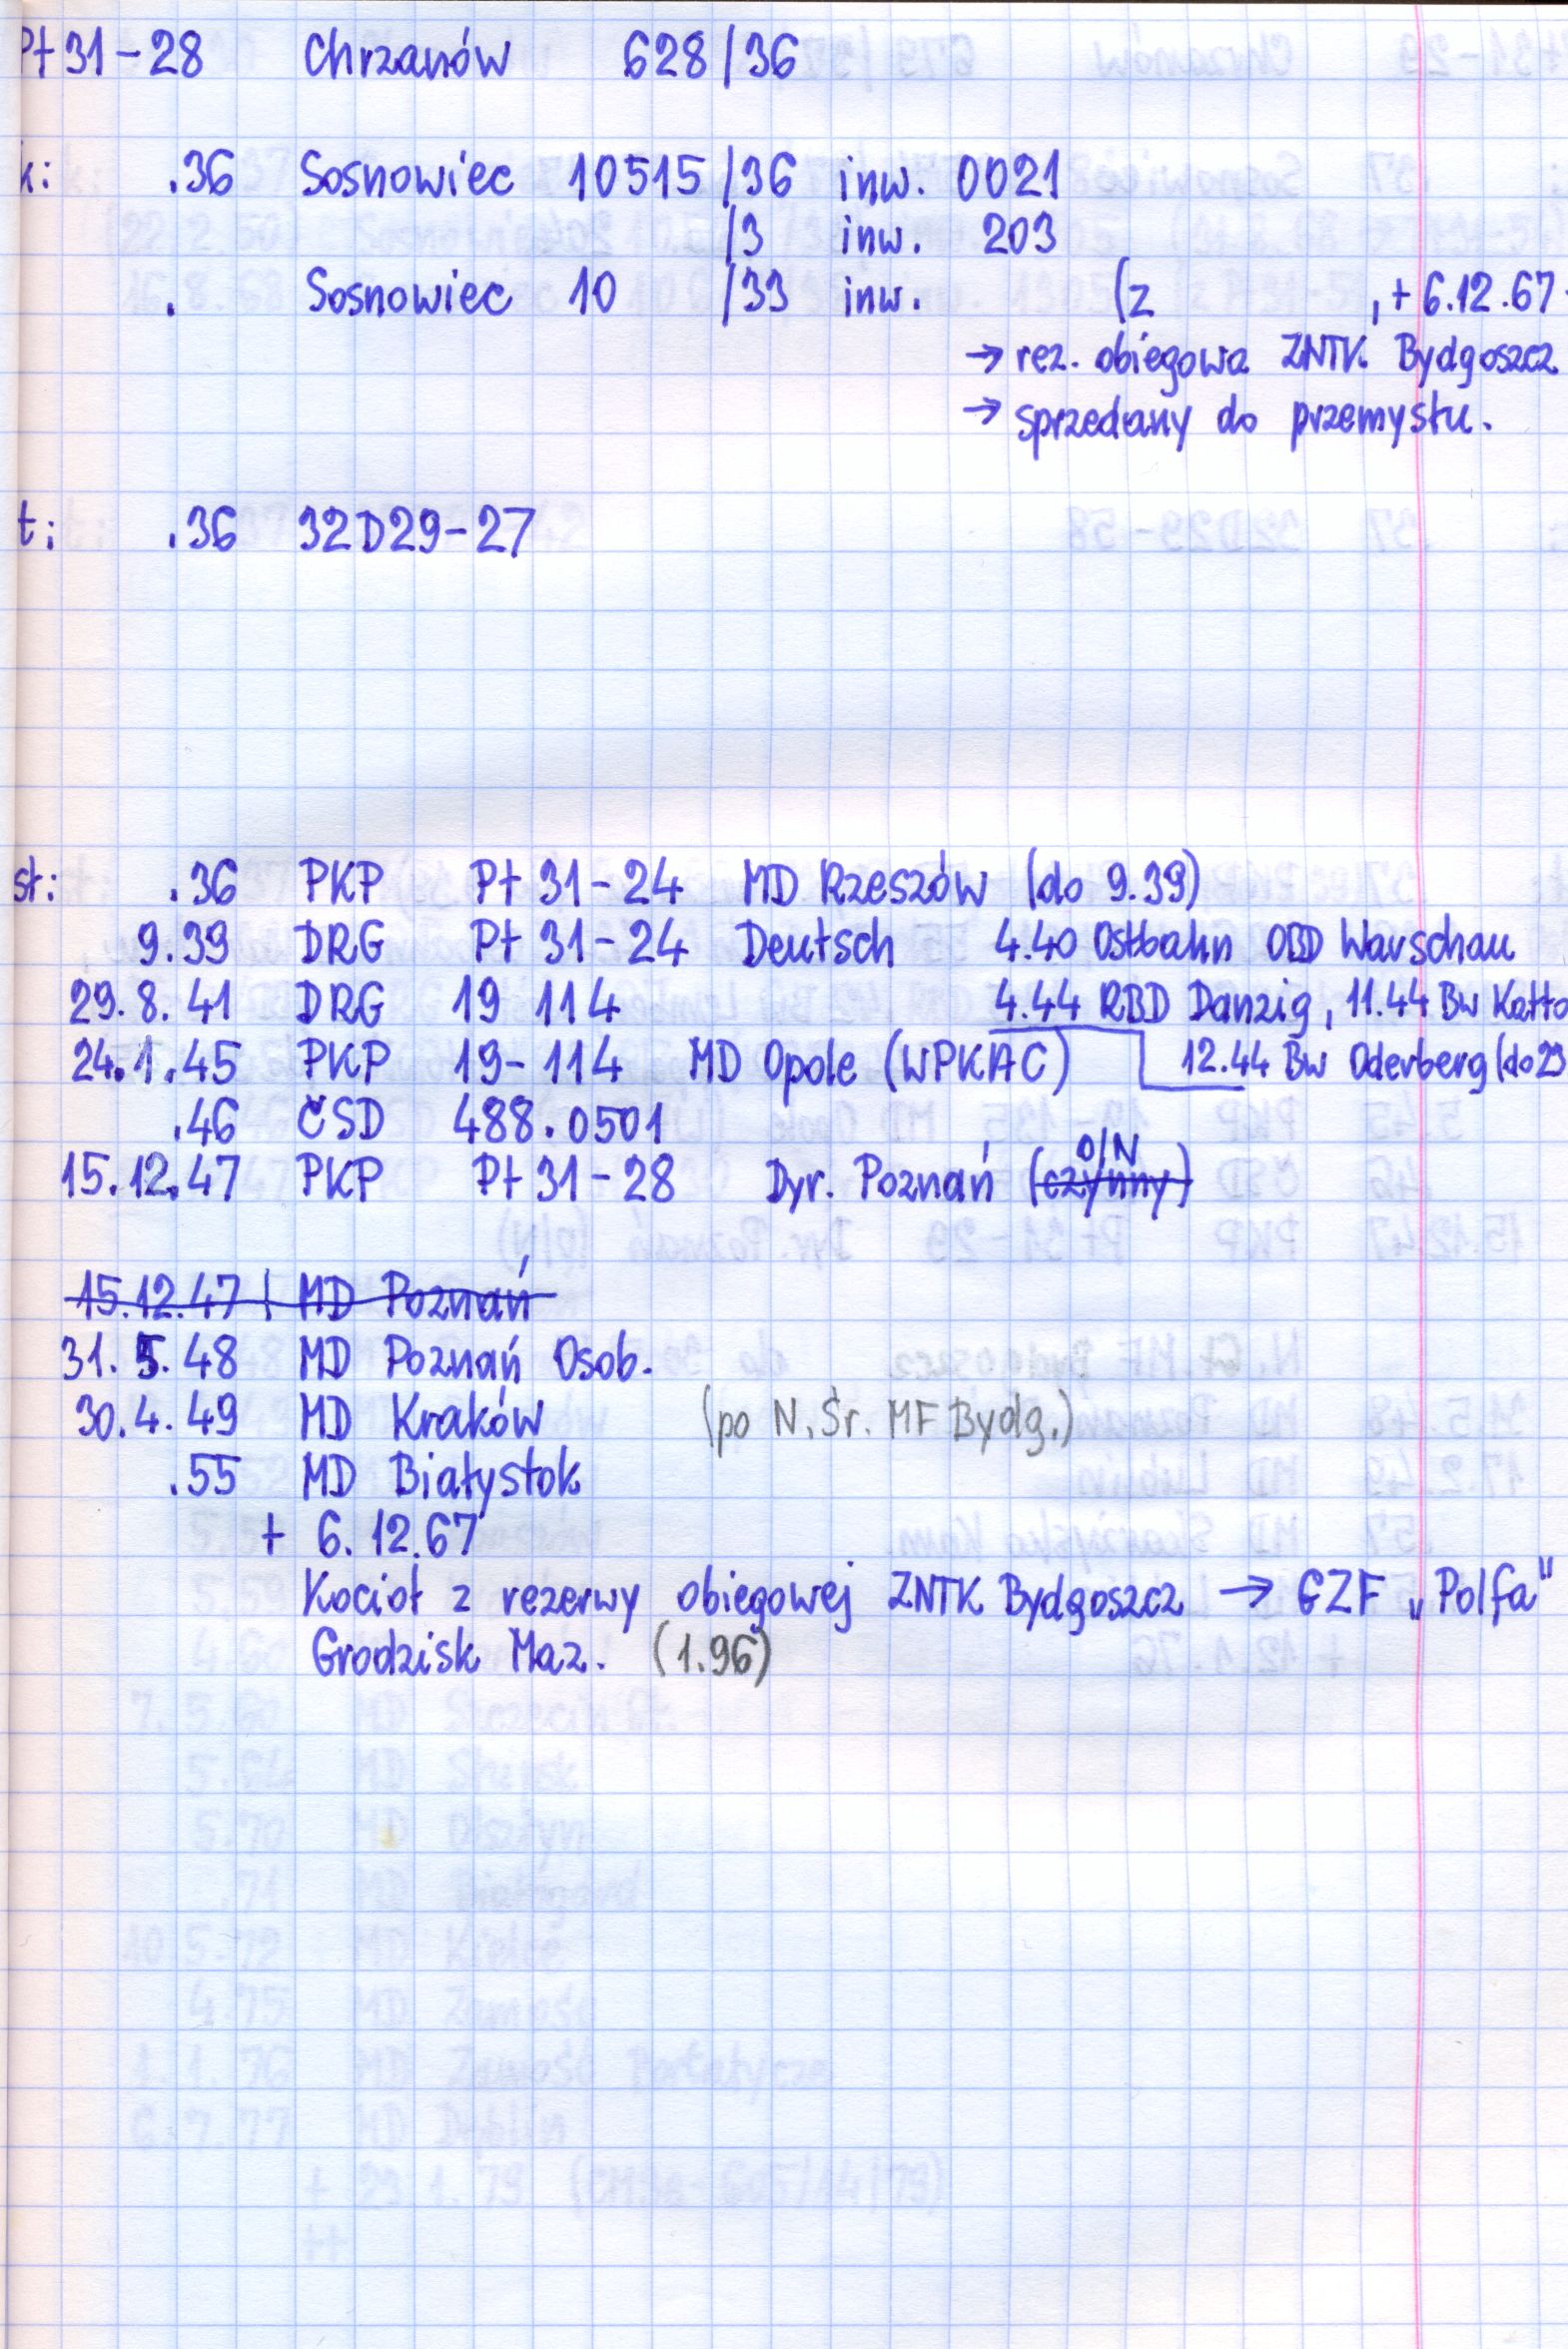 Pt 31-28 Chrzanów 628/36
k: .36 Sosnowiec 10515/36 inw. 0021
/3 inw. 203
. Sosnowiec 10 /33 inw. (z , + 6.12.67
→ rez. obiegowa ZNTK Bydgoszcz
→ sprzedany do przemysłu.
t: .36 32D29-27
st: .36 PKP Pt 31-24 MD Rzeszów (do 9.39)
9.39 DRG Pt 31-24 Deutsch 4.40 Ostbahn OBD Warschau
29.8.41 DRG 19 114 4.44 RBD Danzig, 11.44 Bw Katto
24.1.45 PKP 19-114 MD Opole (WPKAC) 12.44 Bw Oderberg (do 23
.46 ČSD 488.0501
15.12.47 PKP Pt 31-28 Dyr. Poznań (czynny) O/N
15.12.47 | MD Poznań
31.5.48 MD Poznań Osob.
30.4.49 MD Kraków (po N.Śr. MF Bydg.)
.55 MD Białystok
+ 6.12.67
Kocioł z rezerwy obiegowej ZNTK Bydgoszcz → GZF „Polfa"
Grodzisk Maz. (1.96)